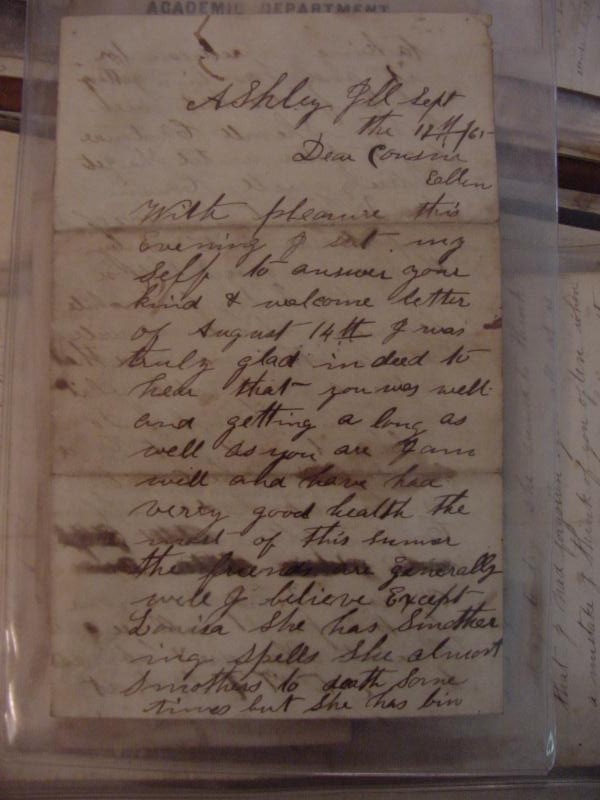 ACADEMIC DEPARTMENT
Ashley Ill Sept
the 12th /65
Dear Cousin
Eallen
With pleasure this
Evening I set my
Self to answer your
kind & welcome letter
of August 14th I was
truly glad indeed to
hear that you was well
and getting a long as
well as you are I am
will and have had
verry good health the
most of this sumer
the friends are generally
well I believe Except
Louisa She has Smother
ing Spells She almost
Smothers to death Some
times but She has bin
that I had forgotten
a mistake I think of you often when